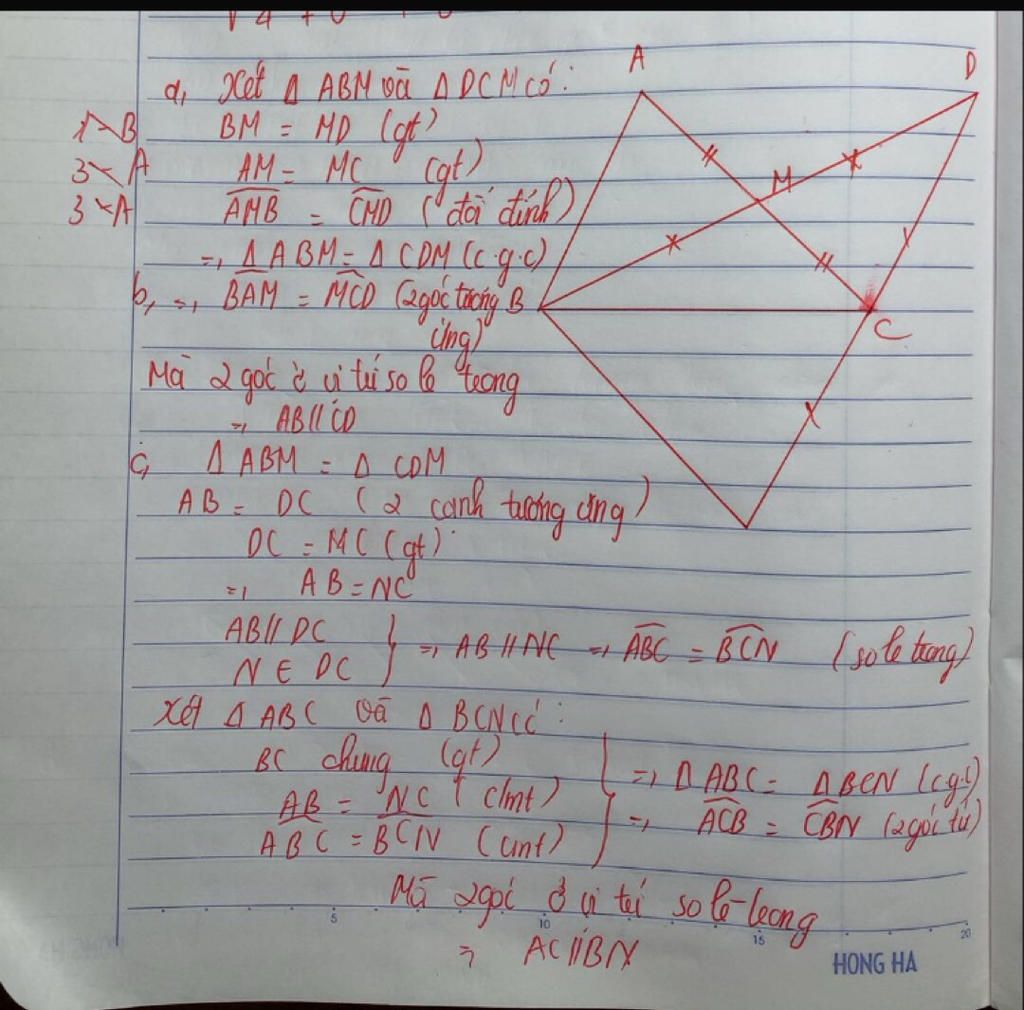 a, Xét Δ ABM và Δ DCM có:
1-B BM = MD (gt)
3-A AM = MC (gt)
3-A AMB = CMD (đối đỉnh)
=, Δ ABM = Δ CDM (c.g.c)
b, =, BAM = MCD (2 góc tương
ứng)
Mà 2 góc ở vị trí so le trong
=, AB // CD
c, Δ ABM = Δ CDM
AB = DC (2 cạnh tương ứng)
DC = MC (gt)
=, AB = NC
AB // DC
N ∈ DC } =, AB // NC =, ABC = BCN (so le trong)
Xét Δ ABC và Δ BCN có:
BC chung (gt)
AB = NC (cmt)
ABC = BCN (cmt)
} =, Δ ABC = Δ BCN (c.g.c)
=, ACB = CBN (2 góc tứ)
Mà 2 góc ở vị trí so le trong
=, AC // BN
A
D
M
B
C
5 10 15 20
HONG HA